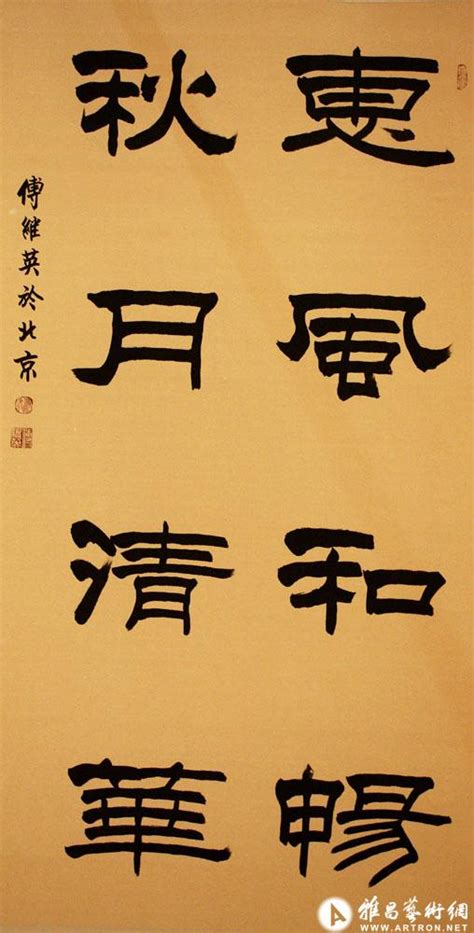 惠風和暢
秋月清華
傅維英於北京
雅昌藝術網
WWW.ARTRON.NET